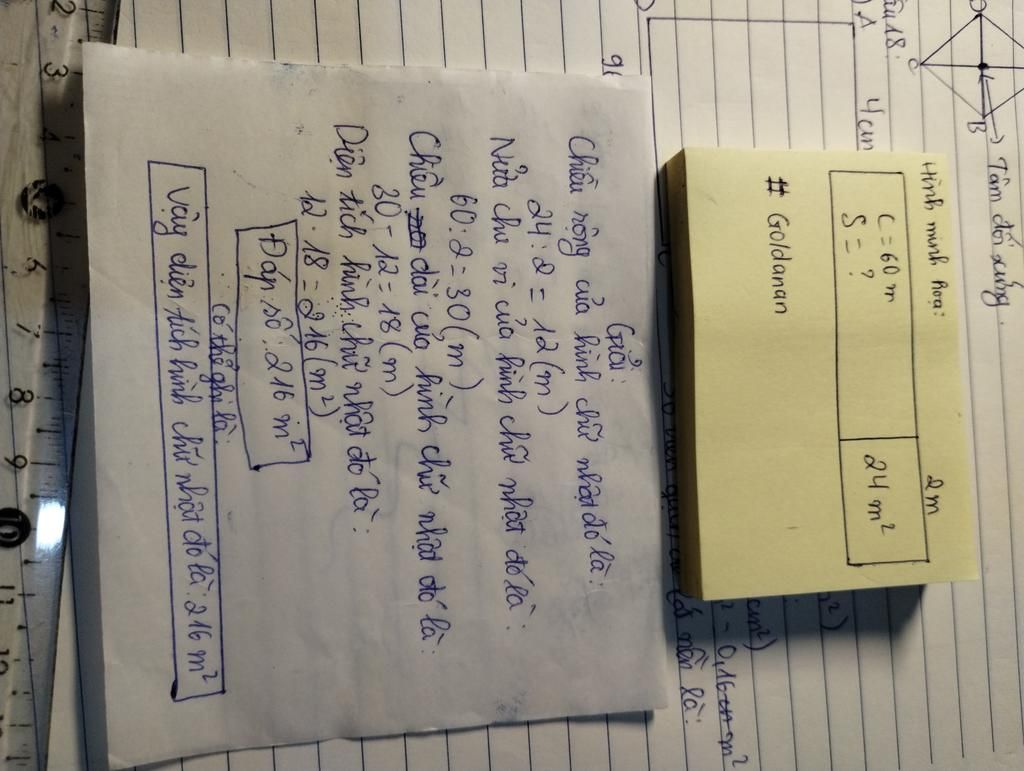 Câu 18:
A
4 cm
C
B
Tâm đối xứng.
Hình minh hoạ:
2m
C = 60 m
S = ?
24 m²
# Goldanan
Giải:
Chiều rộng của hình chữ nhật đó là:
24 : 2 = 12 (m)
Nửa chu vi của hình chữ nhật đó là:
60 : 2 = 30 (m)
Chiều dài của hình chữ nhật đó là:
30 - 12 = 18 (m)
Diện tích hình chữ nhật đó là:
12 . 18 = 216 (m²)
Đáp số: 216 m²
Có thể ghi là:
Vậy diện tích hình chữ nhật đó là: 216 m²
cm²)
nền là:
2
3
4
6
7
8
9
10
11
12